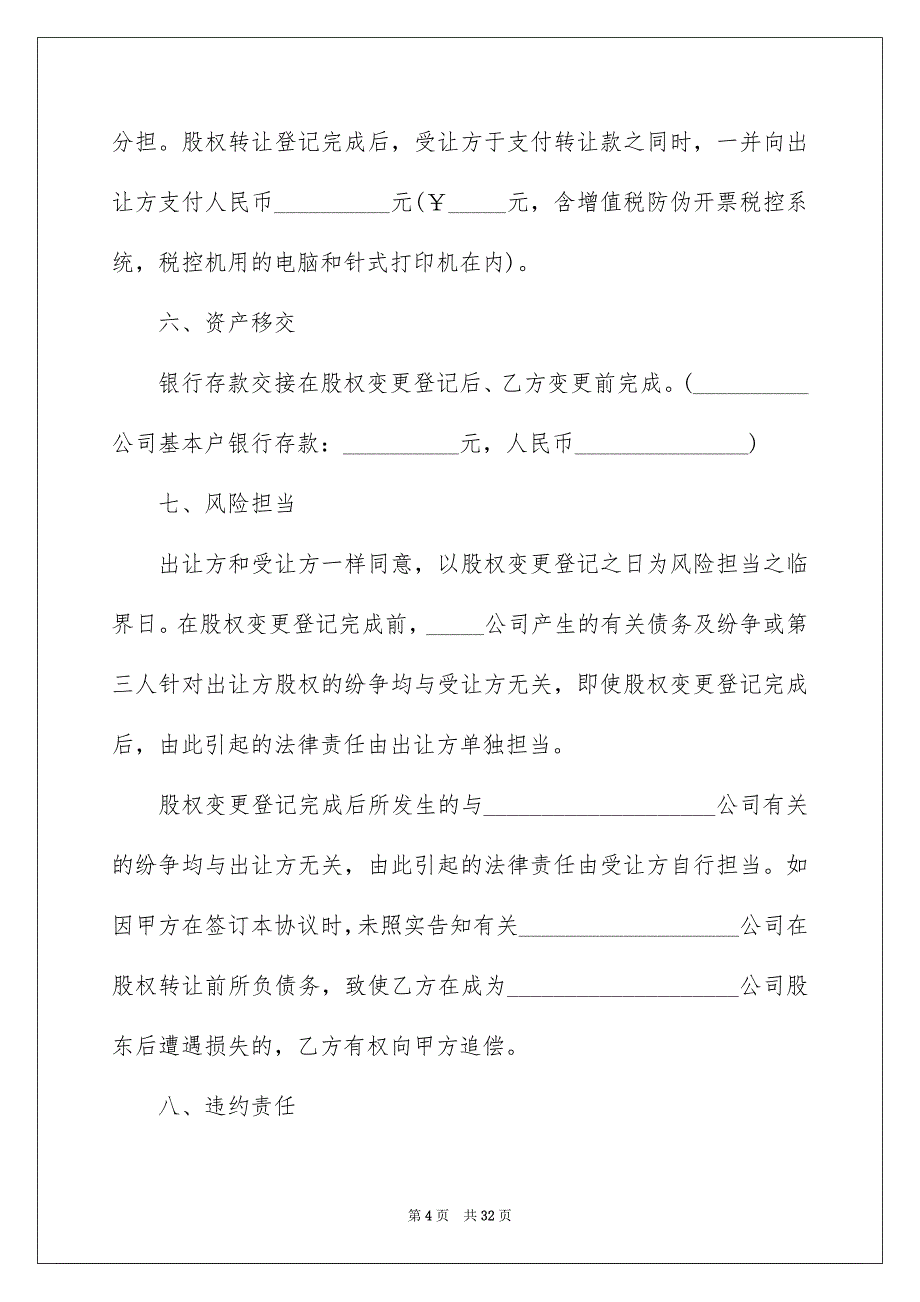 分担。股权转让登记完成后，受让方于支付转让款之同时，一并向出
让方支付人民币__________元(￥_____元，含增值税防伪开票税控系
统，税控机用的电脑和针式打印机在内)。
六、资产移交
银行存款交接在股权变更登记后、乙方变更前完成。(__________
公司基本户银行存款：__________元，人民币_______________)
七、风险担当
出让方和受让方一样同意，以股权变更登记之日为风险担当之临
界日。在股权变更登记完成前，_____公司产生的有关债务及纷争或第
三人针对出让方股权的纷争均与受让方无关，即使股权变更登记完成
后，由此引起的法律责任由出让方单独担当。
股权变更登记完成后所发生的与____________________公司有关
的纷争均与出让方无关，由此引起的法律责任由受让方自行担当。如
因甲方在签订本协议时,未照实告知有关___________________公司在
股权转让前所负债务，致使乙方在成为____________________公司股
东后遭遇损失的，乙方有权向甲方追偿。
八、违约责任
第4页 共32页